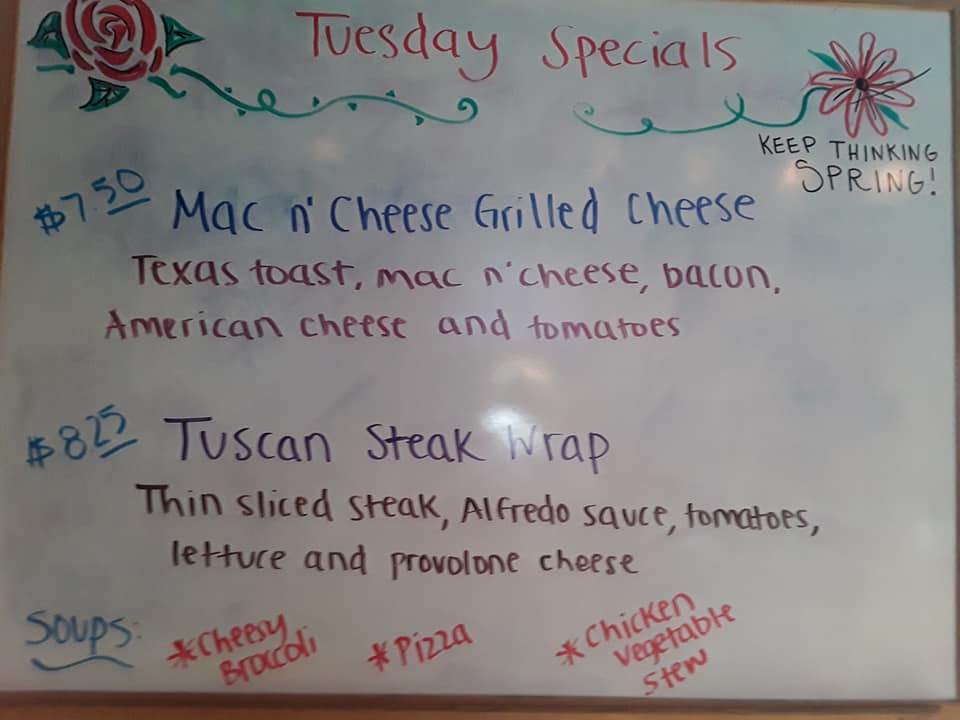 Tuesday Specials
KEEP THINKING
SPRING!
$7.50 Mac n' Cheese Grilled Cheese
Texas toast, mac n' cheese, bacon,
American cheese and tomatoes
$8.25 Tuscan Steak Wrap
Thin sliced steak, Alfredo sauce, tomatoes,
lettuce and provolone cheese
Soups: *Cheesy
Broccoli
*Pizza
*Chicken
Vegetable
Stew